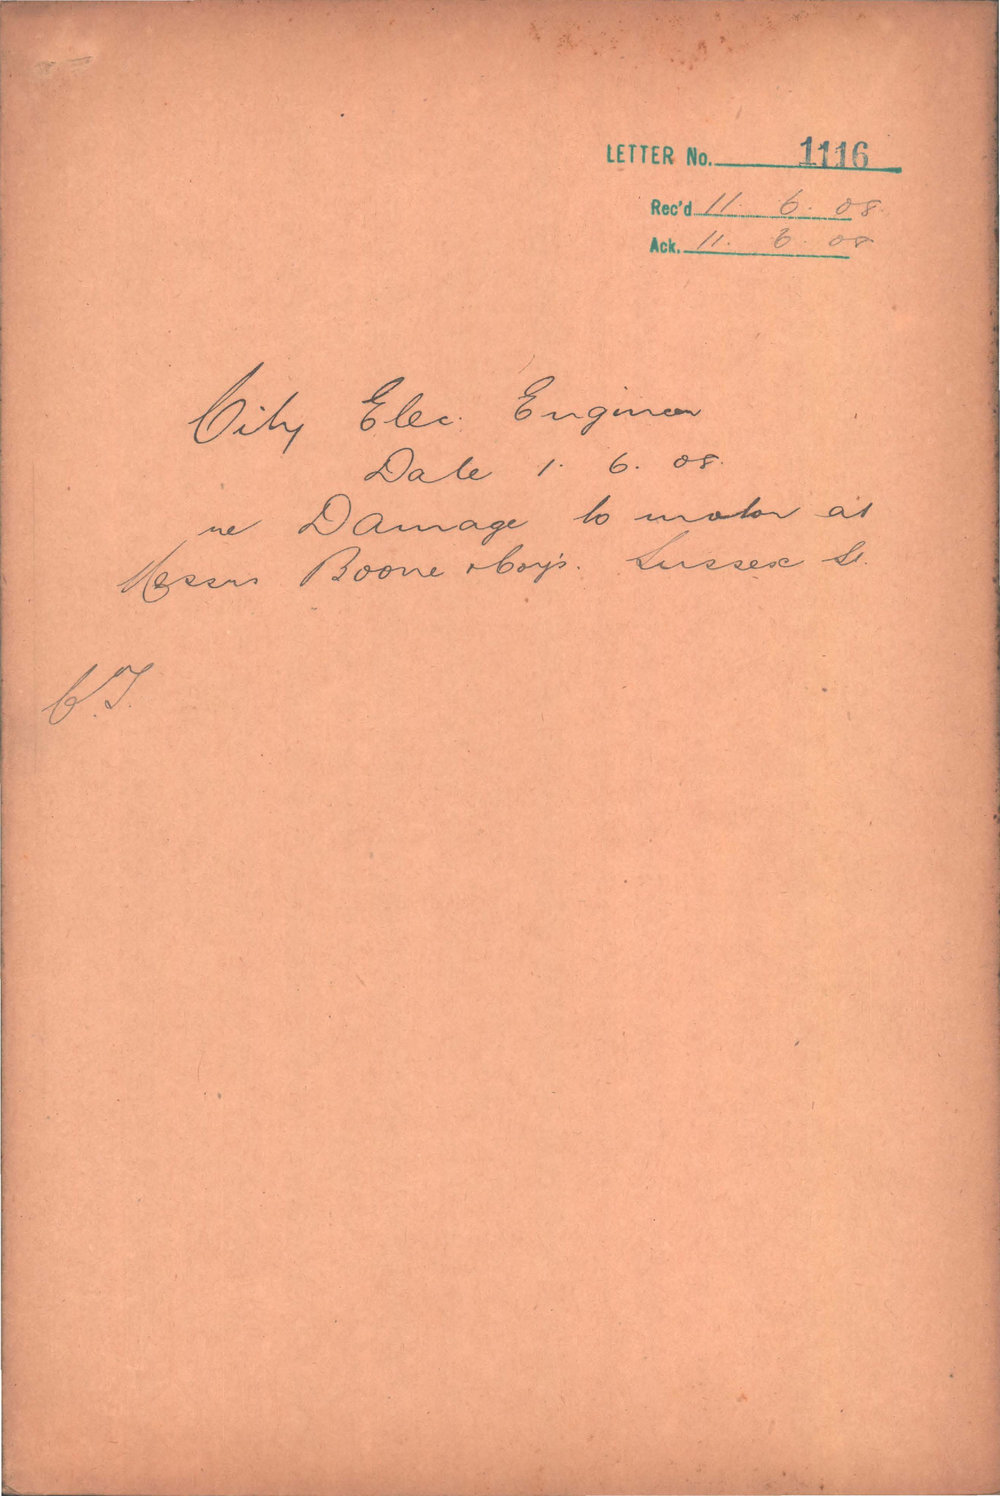 LETTER No. 1116
Rec'd 11. 6. 08.
Ack. 11. 6. 08
City Elec. Engineer
Date 1. 6. 08.
re Damage to motor at
Messrs Boone & Coy's. Sussex St.
C.T.